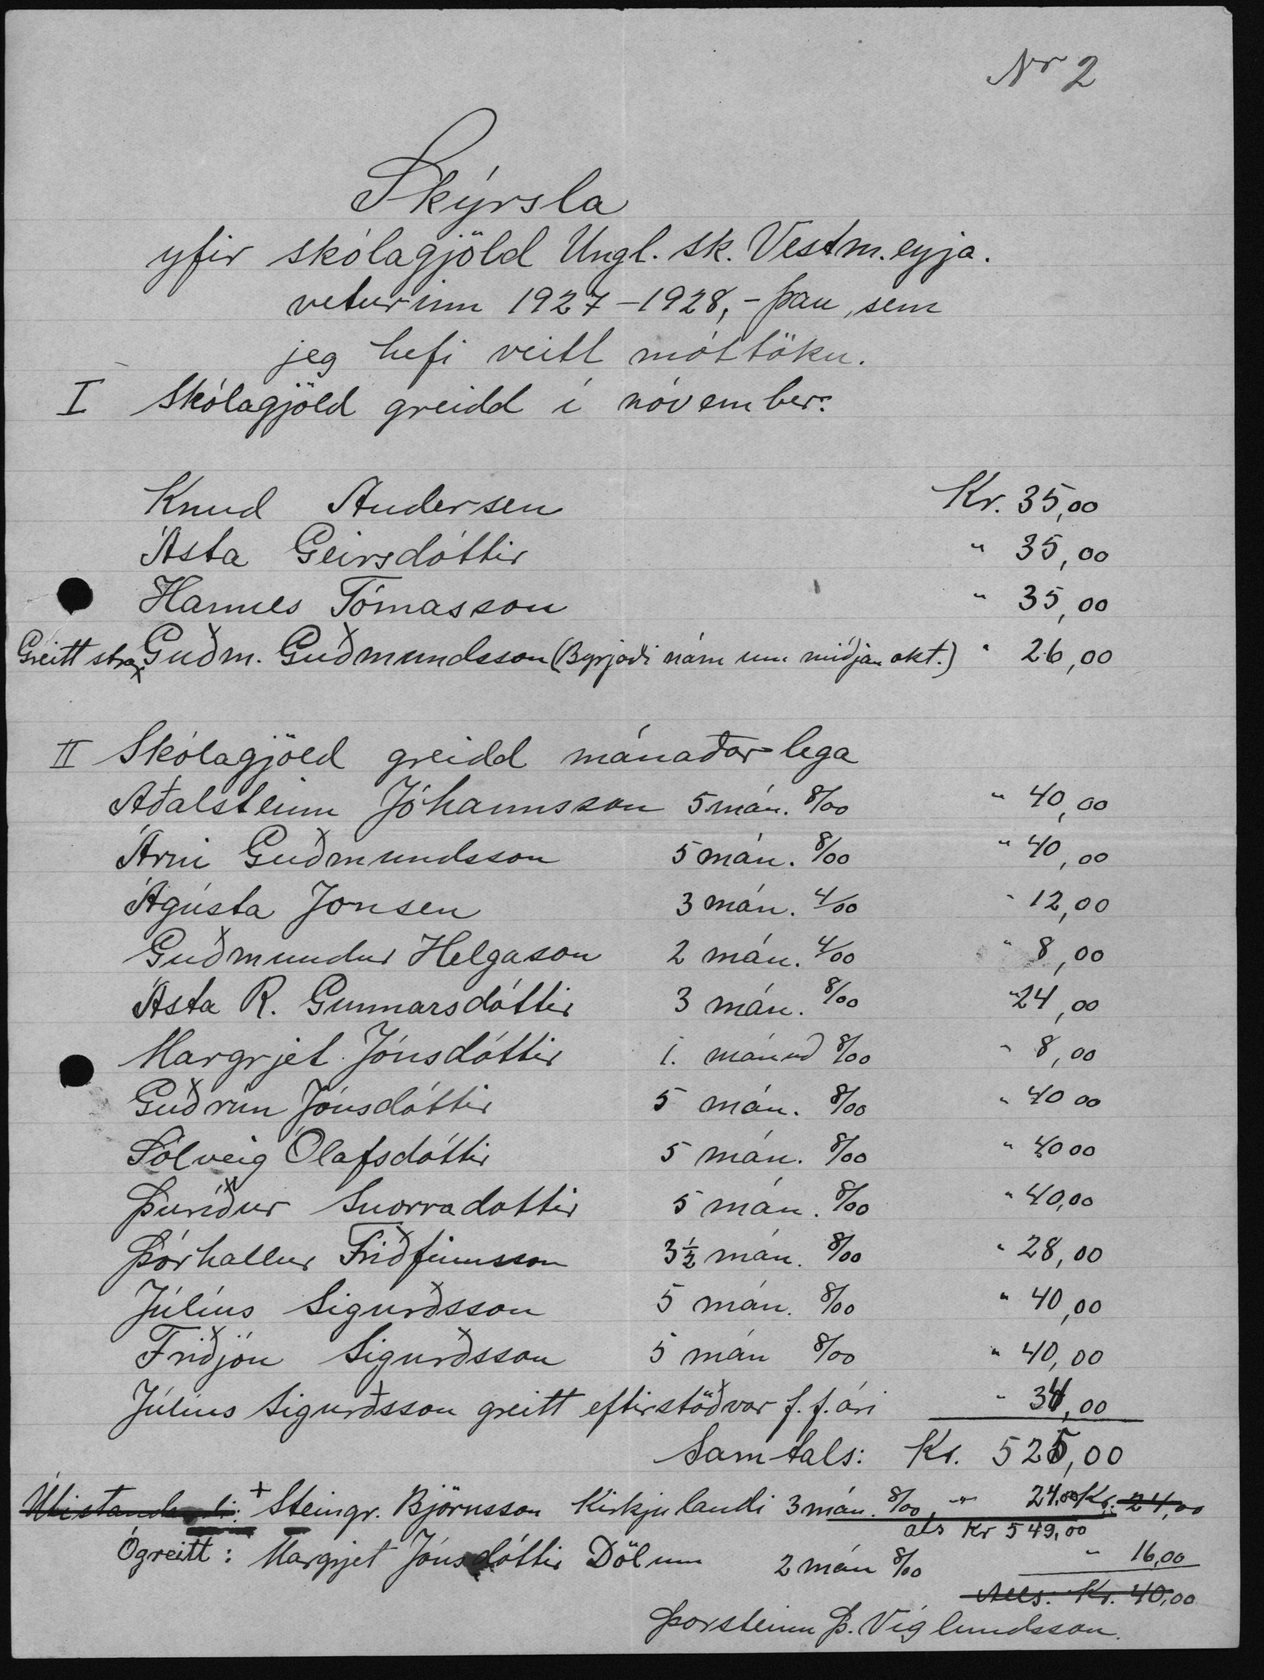 Nr 2
Skýrsla
yfir skólagjöld Ungl. sk. Vestm.eyja.
veturinn 1927-1928, - þau, sem
jeg hefi veitt móttöku.
I Skólagjöld greidd í nóvember:
Knud Andersen Kr. 35,00
Ásta Geirsdóttir " 35,00
Hannes Tómasson " 35,00
Greitt strax Guðm. Guðmundsson (Byrjaði nám um miðjan okt.) " 26,00
II Skólagjöld greidd mánaðarlega
Aðalsteinn Jóhannsson 5 mán. 8/00 " 40,00
Árni Guðmundsson 5 mán. 8/00 " 40,00
Ágústa Jonsen 3 mán. 4/00 " 12,00
Guðmundur Helgason 2 mán. 4/00 " 8,00
Ásta R. Gunnarsdóttir 3 mán. 8/00 " 24,00
Margrjet Jónsdóttir 1. mánuð 8/00 " 8,00
Guðrún Jónsdóttir 5 mán. 8/00 " 40 00
Sólveig Ólafsdóttir 5 mán. 8/00 " 40 00
Þuríður Snorradottir 5 mán. 8/00 " 40,00
Þórhallur Friðfinnsson 3½ mán. 8/00 " 28,00
Júlíus Sigurðsson 5 mán. 8/00 " 40,00
Friðjón Sigurðsson 5 mán 8/00 " 40,00
Júlíus Sigurðsson greitt eftirstöðvar f. f. ári " 34,00
Samtals: Kr. 525,00
Útistandandi: + Steingr. Björnsson Kirkjulandi 3 mán. 8/00 " 24.00 Kr. 24,00
als Kr 549,00
Ógreitt: Margrjet Jónsdóttir Dölum 2 mán 8/00 " 16,00
Alls: Kr. 40,00
Þorsteinn Þ. Víglundsson.